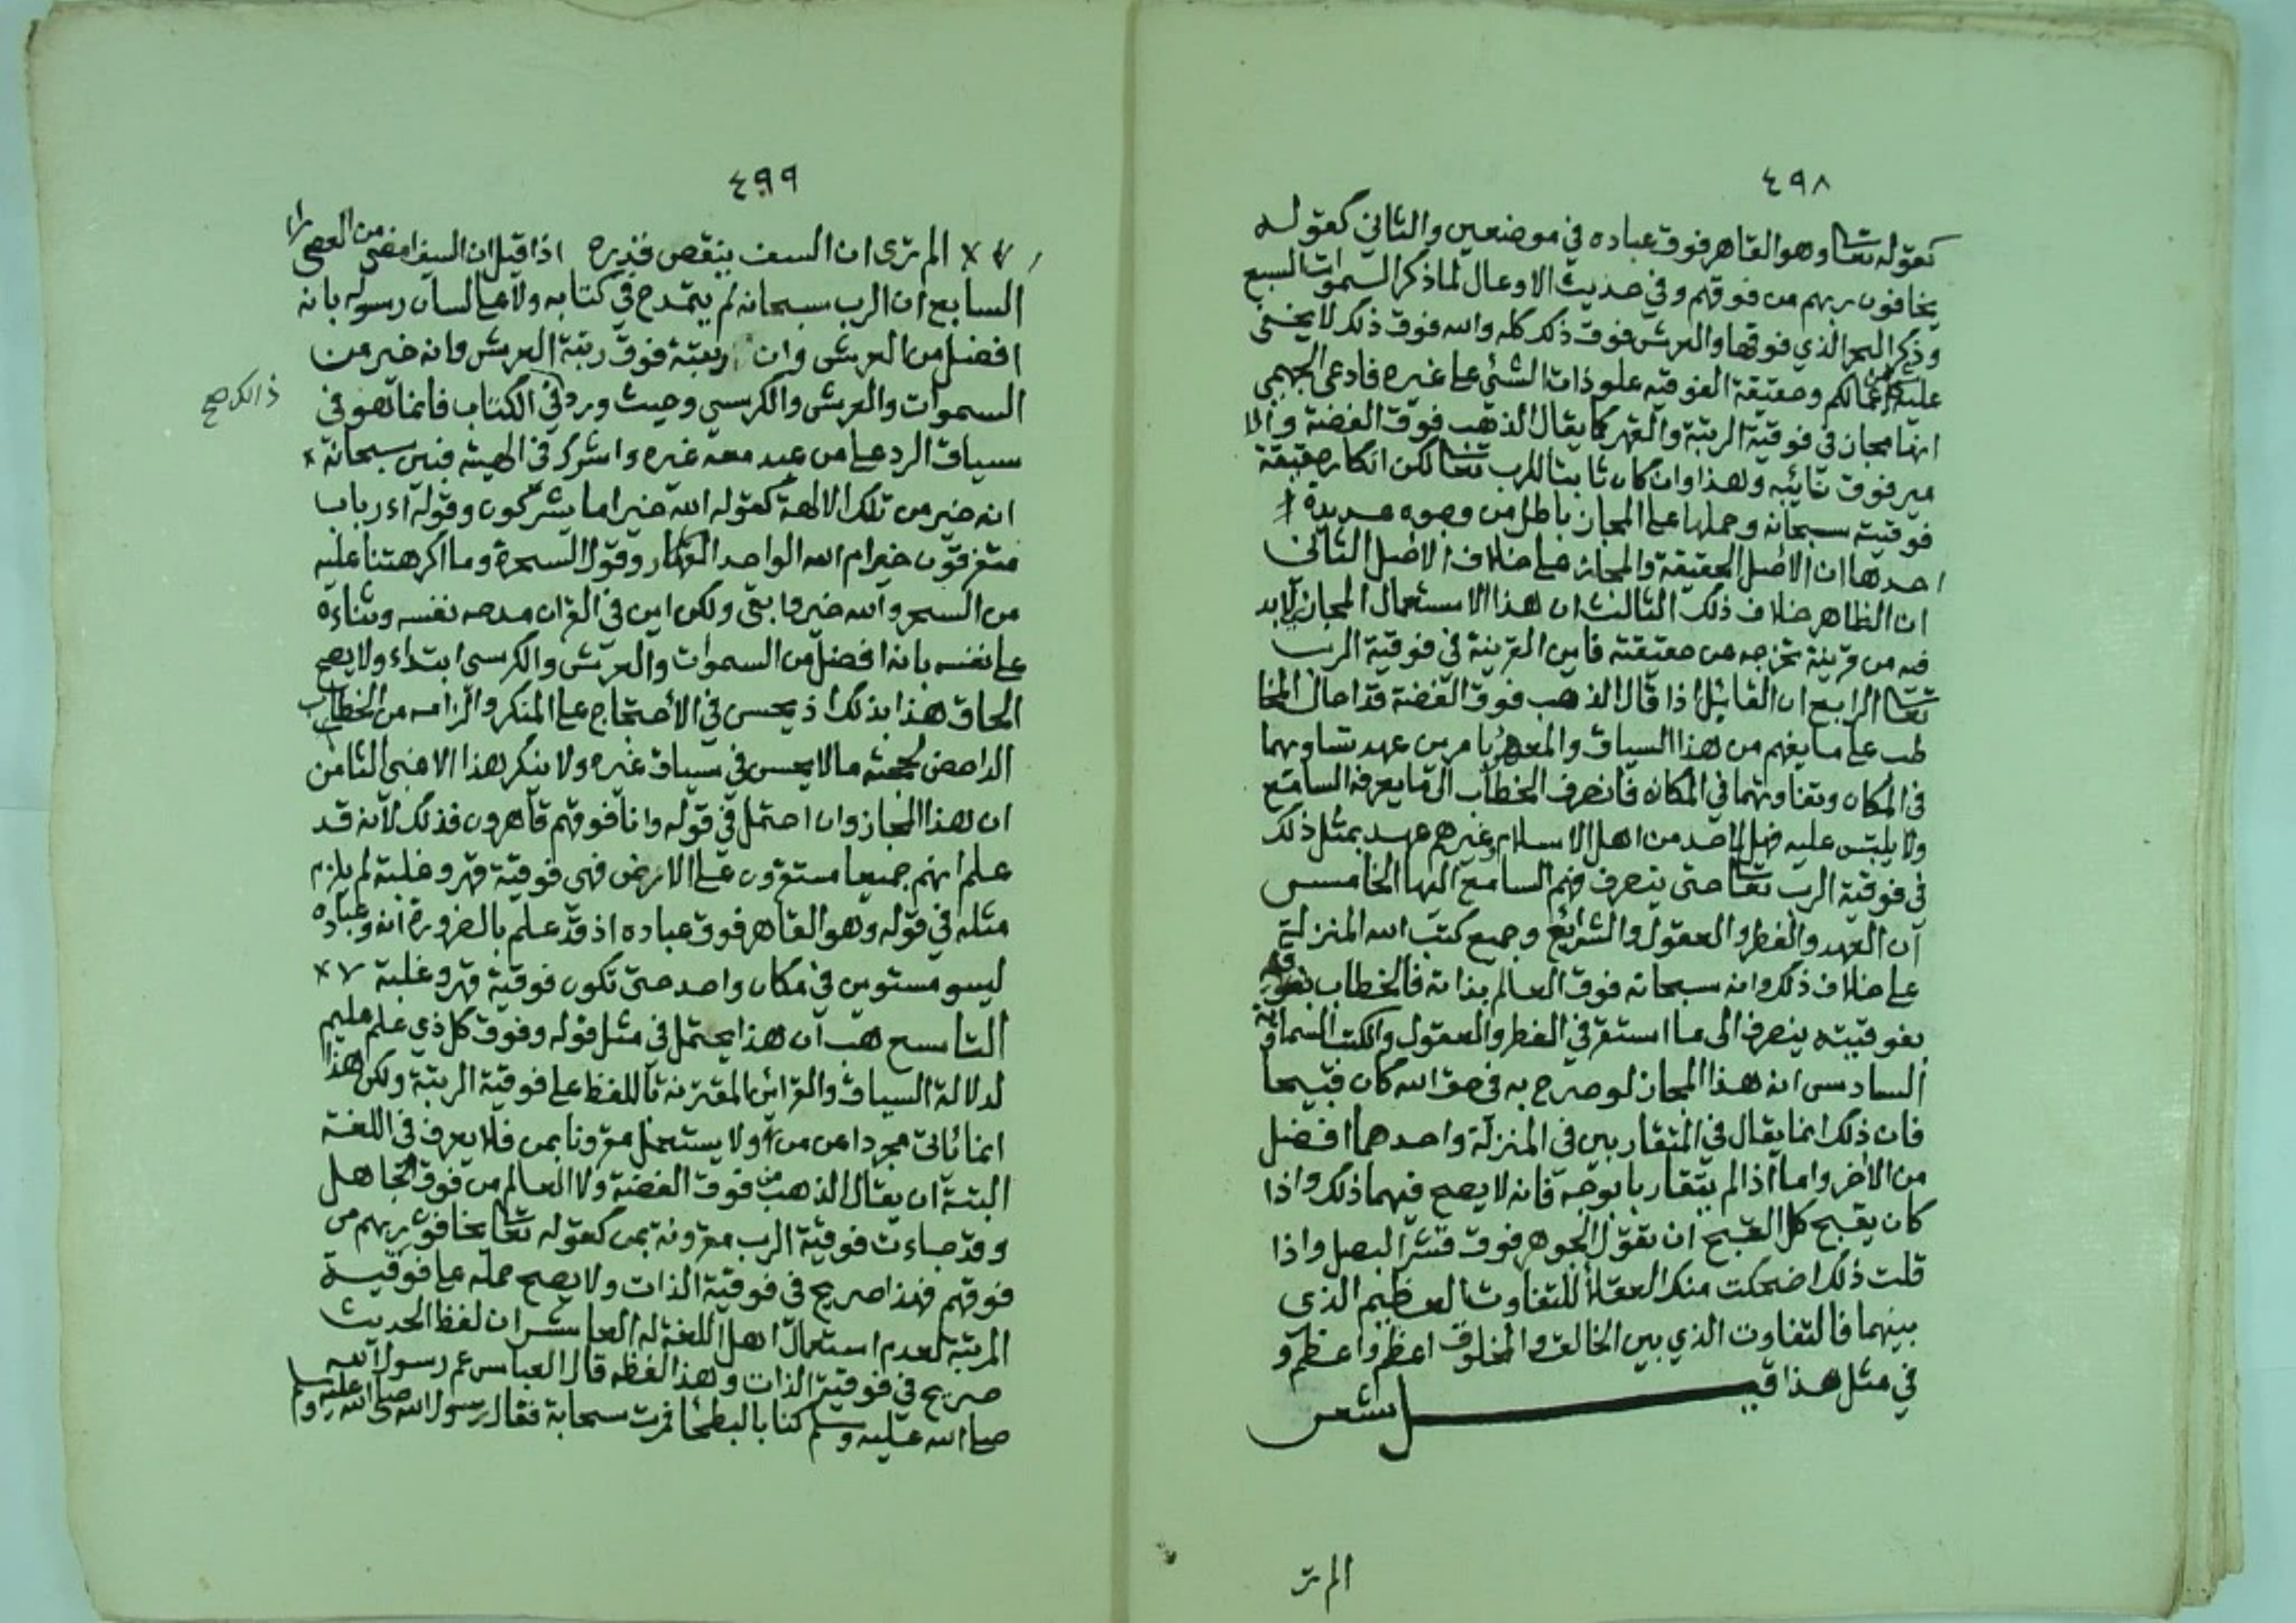 ٤٩٨
كقوله تعالى وهو القاهر فوق عباده في موضعين والثاني كقوله
يخافون ربهم من فوقهم وفي حديث الاوعال لما ذكر السموات السبع
وذكر البحر الذي فوقها والعرش فوق ذلك كله والله فوق ذلك لا يخفى
عليه من اعمالكم وحقيقة الفوقيه علو ذات الشئ على غيره فادعى الجهمي
انها مجاز في فوقية الرتبة والقهر كما يقال الذهب فوق الفضة والا
مير فوق نائبه وهذا وان كان ثابتا للرب تعالى لكن انكار حقيقة
فوقيته سبحانه وحملها على المجاز باطل من وجوه عديدة
احدها ان الاصل الحقيقة والمجاز على خلاف الاصل الثاني
ان الظاهر خلاف ذلك الثالث ان هذا الاستعمال المجازي لابد
فيه من قرينة تخرجه عن حقيقته فاين القرينة في فوقية الرب
تعالى الرابع ان القائل اذا قال الذهب فوق الفضة قد احال المخا
طب على ما يفهم من هذا السياق والمعهود بامرين عهد تساويهما
في المكان وتفاوتهما في المكانه فانصرف الخطاب الى ما يعرفه السامع
ولا يلتبس عليه فهل لاحد من اهل الاسلام وغيرهم عهد بمثل ذلك
في فوقية الرب تعالى حتى ينصرف فهم السامع اليها الخامس
ان العهد والفطر والعقول والشرائع وجميع كتب الله المنزلة
على خلاف ذلك وانه سبحانه فوق العالم بذاته فالخطاب
بفوقيته ينصرف الى ما استقر في الفطر والعقول والكتب السماوية
السادس ان هذا المجاز لو صرح به في حق الله كان قبيحا
فان ذلك انما يقال في المتقاربين في المنزلة واحدهما افضل
من الاخر واما اذا لم يتقاربا بوجه فانه لا يصح فيهما ذلك واذا
كان يقبح كل القبح ان تقول الجوهر فوق قشر البصل واذا
قلت ذلك اضحكت منك العقلا للتفاوت العظيم الذي
بينهما فالتفاوت الذي بين الخالق والمخلوق اعظم واعظم و
في مثل هذا قيل شعر
الم تر
٤٩٩
الم ترى ان السيف ينقص قدره اذا قيل ان السيف امضى من العصى
السابع ان الرب سبحانه لم يتمدح في كتابه ولا على لسان رسوله بانه
افضل من العرش وان رتبته فوق رتبة العرش وانه خير من
السموات والعرش والكرسي وحيث ورد في الكتاب فانما هو في
ذالك صح
سياق الرد على من عبد معه غيره واشرك في الهيته فبين سبحانه
انه خير من تلك الالهة كقوله الله خير اما يشركون وقوله اء رباب
متفرقون خير ام الله الواحد القهار وقول السحرة وما اكرهتنا عليه
من السحر والله خير وابقى ولكن اين في القران مدحه نفسه وثناءه
على نفسه بانه افضل من السموات والعرش والكرسي ابتداء ولا يصح
الحاق هذا بذلك اذ يحسن في الاحتجاج على المنكر والزامه من الخطاب
الداحض لحجته ما لا يحسن في سياق غيره ولا ينكر هذا الا غبي الثامن
ان هذا المجاز وان احتمل في قوله وانا فوقهم قاهرون فذلك لانه قد
علم انهم جميعا مستقرون على الارض فهي فوقية قهر وغلبة لم يلزم
مثله في قوله وهو القاهر فوق عباده اذ قد علم بالضرورة انه وعباده
ليسو مستوين في مكان واحد حتى تكون فوقية قهر وغلبة
التاسع هب ان هذا يحتمل في مثل قوله وفوق كل ذي علم عليم
لدلالة السياق والقرائن المقترنة باللفظ على فوقية الرتبة ولكن هذا
انما ياتي مجردا عن من ولا يستعمل مقرونا بمن فلا يعرف في اللغة
البتة ان يقال الذهب من فوق الفضة ولا العالم من فوق الجاهل
وقد جاءت فوقية الرب مقرونة بمن كقوله تعالى يخافون ربهم من
فوقهم فهذا صريح في فوقية الذات ولا يصح حمله على فوقية
المرتبة لعدم استعمال اهل اللغة له العاشر ان لفظ الحديث
صريح في فوقية الذات وهذا لفظه قال العباس عم رسول الله
صلى الله عليه وسلم كنا بالبطحا فمرت سحابة فقال رسول الله صلى الله عليه وسلم